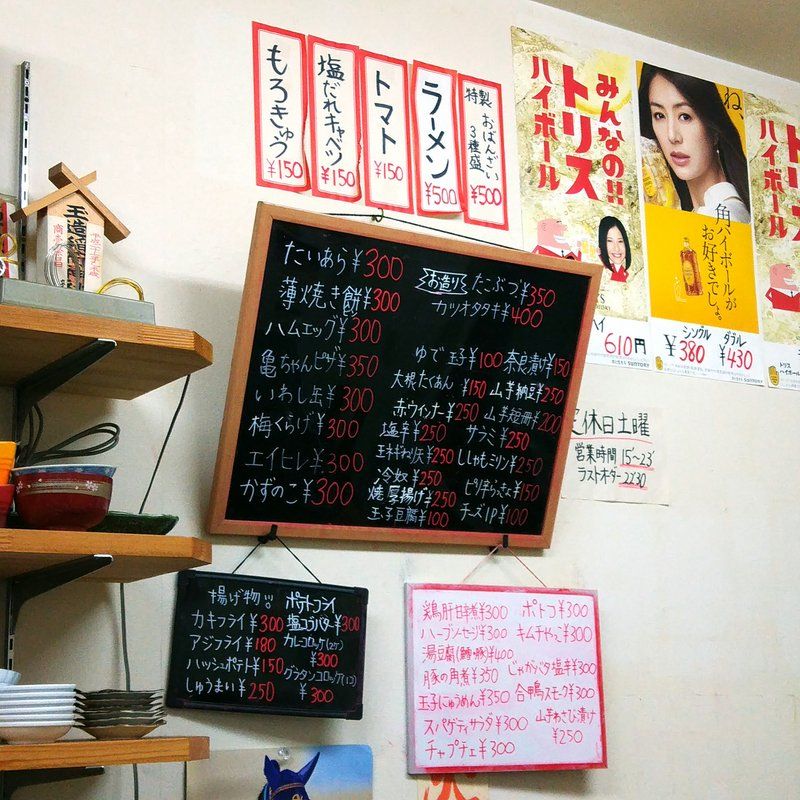 もろきゅう ¥150
塩だれキャベツ ¥150
トマト ¥150
ラーメン ¥500
特製 おばんざい 3種盛 ¥500
みんなの!!
トリス
ハイボール
ね、
角ハイボールが
お好きでしょ。
トリス
ハイボール
610円
シングル ダブル
¥380 ¥430
SUNTORY
たいあら¥300
薄焼き餅¥300
ハムエッグ¥300
亀ちゃんピザ¥350
いわし缶¥300
梅くらげ¥300
エイヒレ¥300
かずのこ¥300
お造り たこぶつ¥350
カツオタタキ¥400
ゆで玉子¥100 奈良漬け¥150
大根たくあん ¥150 山芋納豆¥250
赤ウインナー¥250 山芋短冊¥200
塩辛¥250 サラミ¥250
¥250 ししゃもミリン¥250
冷奴¥250
焼厚揚げ¥250 ピリ辛らっきょ¥150
玉子豆腐¥100 チーズ1P¥100
定休日土曜
営業時間 15~23
ラストオーダー 22:30
揚げ物
カキフライ¥300
アジフライ¥180
ハッシュポテト¥150
しゅうまい¥250
ポテトフライ
塩コラバター¥300
カレーコロッケ(2ケ)
¥300
グラタンコロッケ(1コ)
¥300
鶏肝甘辛煮¥300 ポトフ¥300
ハーブソーセージ¥300 キムチやっこ¥300
湯豆腐(鱈・豚)¥400
豚の角煮¥350 じゃがバタ塩辛¥300
玉子にゅうめん¥350 合鴨スモーク¥300
スパゲティサラダ¥300 山芋わさび漬け
¥250
チャプチェ¥300